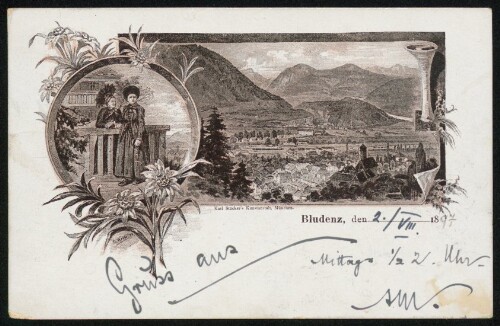 Karl Stücker's Kunstanstalt, München.
Bludenz, den 2./VIII. 1897
Gruss aus
Mittags 1/2 2 Uhr.
AM.